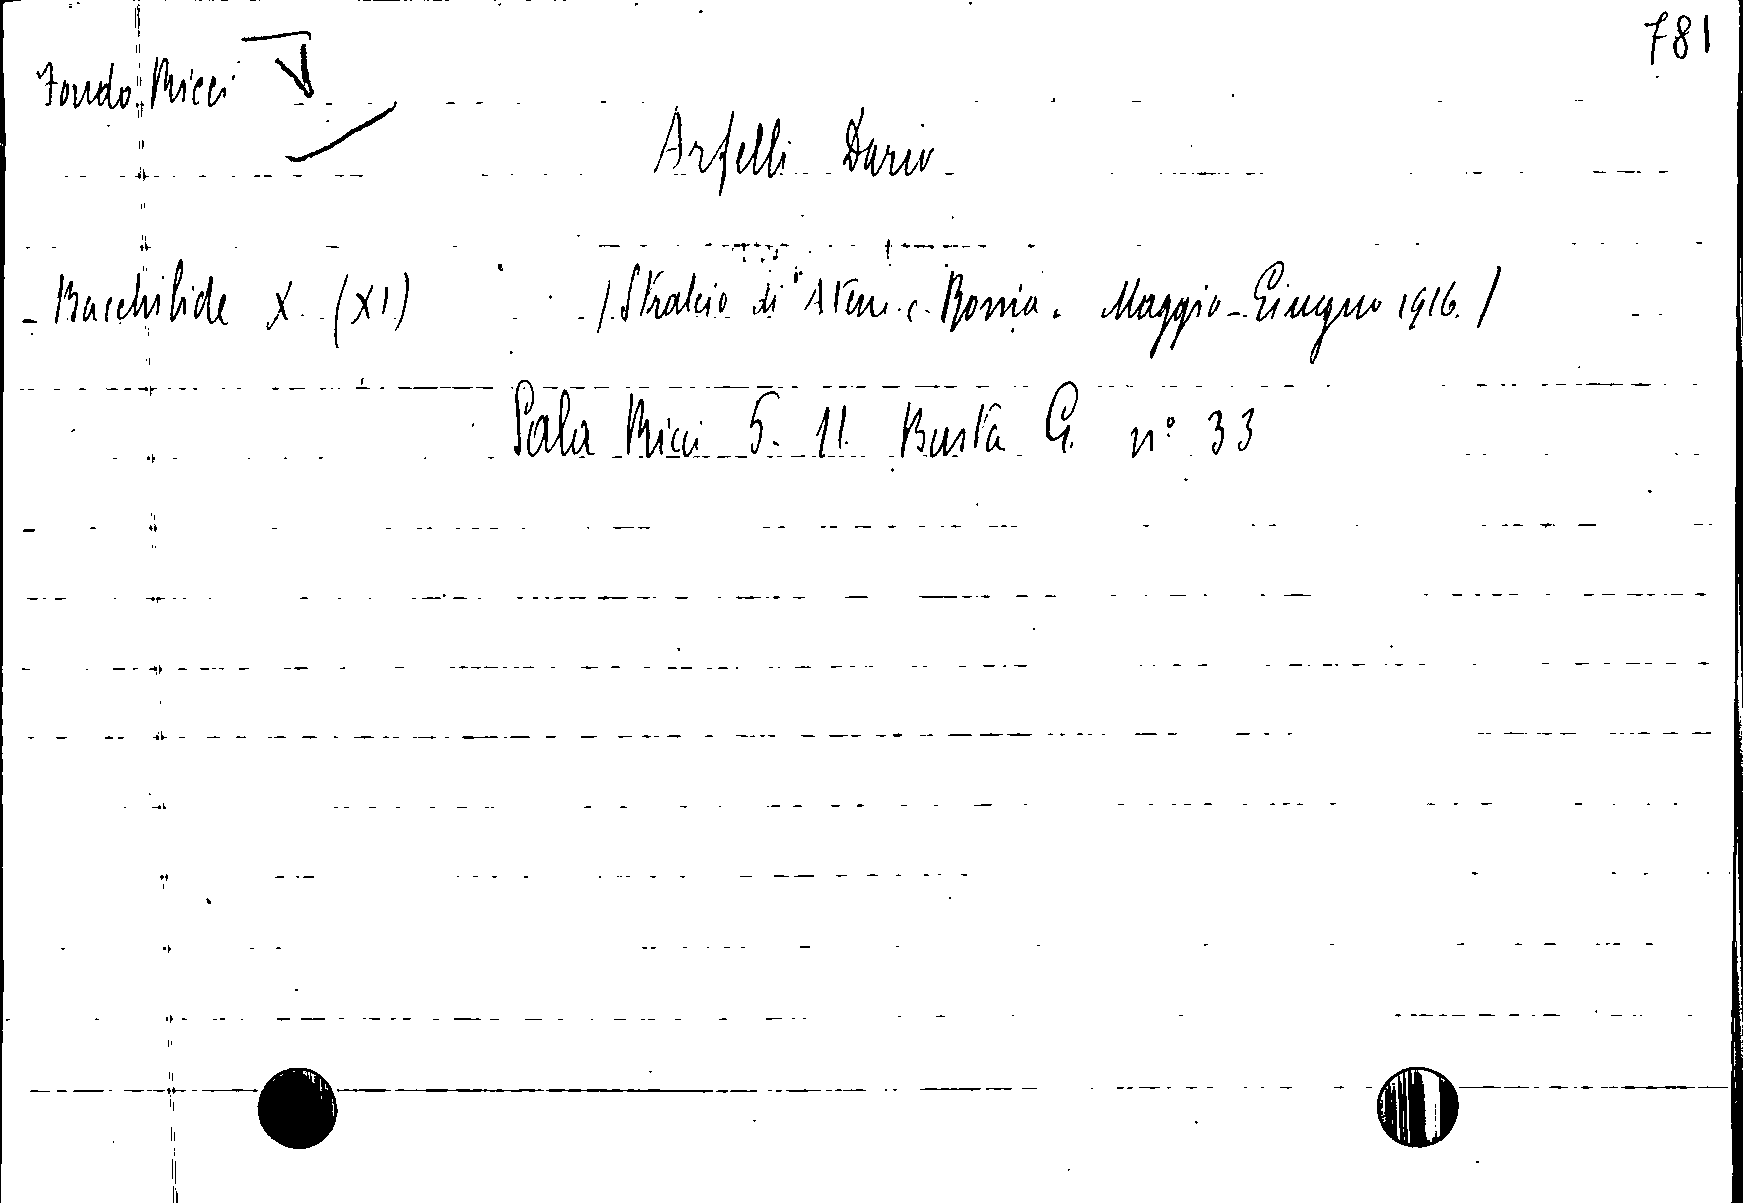 781
Fondo Ricci
Arfelli Dario
- Bacchilide X (XI) /Stralcio di "Atene e Roma. Maggio-Giugno 1916./
Sala Ricci 5. 11. Busta G. n° 33